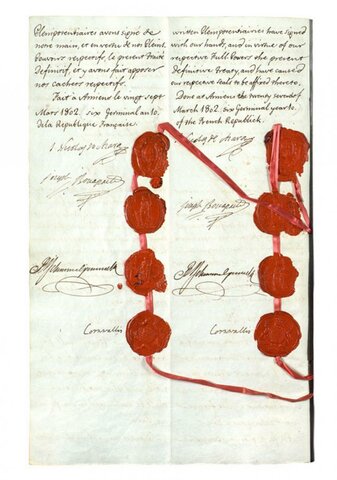 Plenipotentiaires avons signé de
notre main, et en vertu de nos Pleins
Pouvoirs respectifs, le présent Traité
Definitif, et y avons fait apposer
nos cachets respectifs.
Fait à Amiens le vingt sept
Mars 1802. six Germinal an 10.
de la Republique Française.
J. Nicolas de Azara
Joseph Bonaparte
R J Schimmelpenninck
Cornwallis
written Plenipotentiaries have signed
with our hands, and in virtue of our
respective Full Powers the present
Definitive Treaty, and have caused
our respective Seals to be affixed thereto.
Done at Amiens the twenty seventh of
March 1802. six Germinal year 10
of the French Republick.
Nicolas de Azara
Joseph Bonaparte
R J Schimmelpenninck
Cornwallis